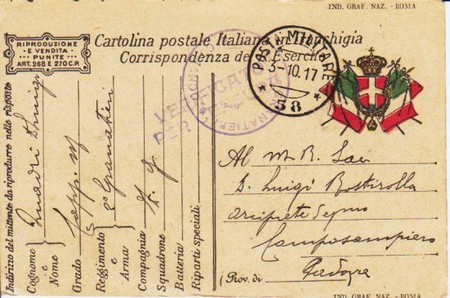 IND. GRAF. NAZ. - ROMA
RIPRODUZIONE
E VENDITA
PUNITE
ART. 268 E 270 C.P.
Cartolina postale Italiana in Franchigia
Corrispondenza del R. Esercito
POSTA MILITARE
3-10.17
* 58 *
VERIFICATO
PER
Indirizzo del mittente da riprodurre nelle risposte
Cognome e Nome
Grado Capp.
Reggimento e Arma 2° Granatieri
Compagnia
Squadrone
Batteria
Riparti speciali
Al M. R. Sac.
D. Luigi
Arciprete
Camposampiero
(Prov. di Padova
IND. GRAF. NAZ. - ROMA